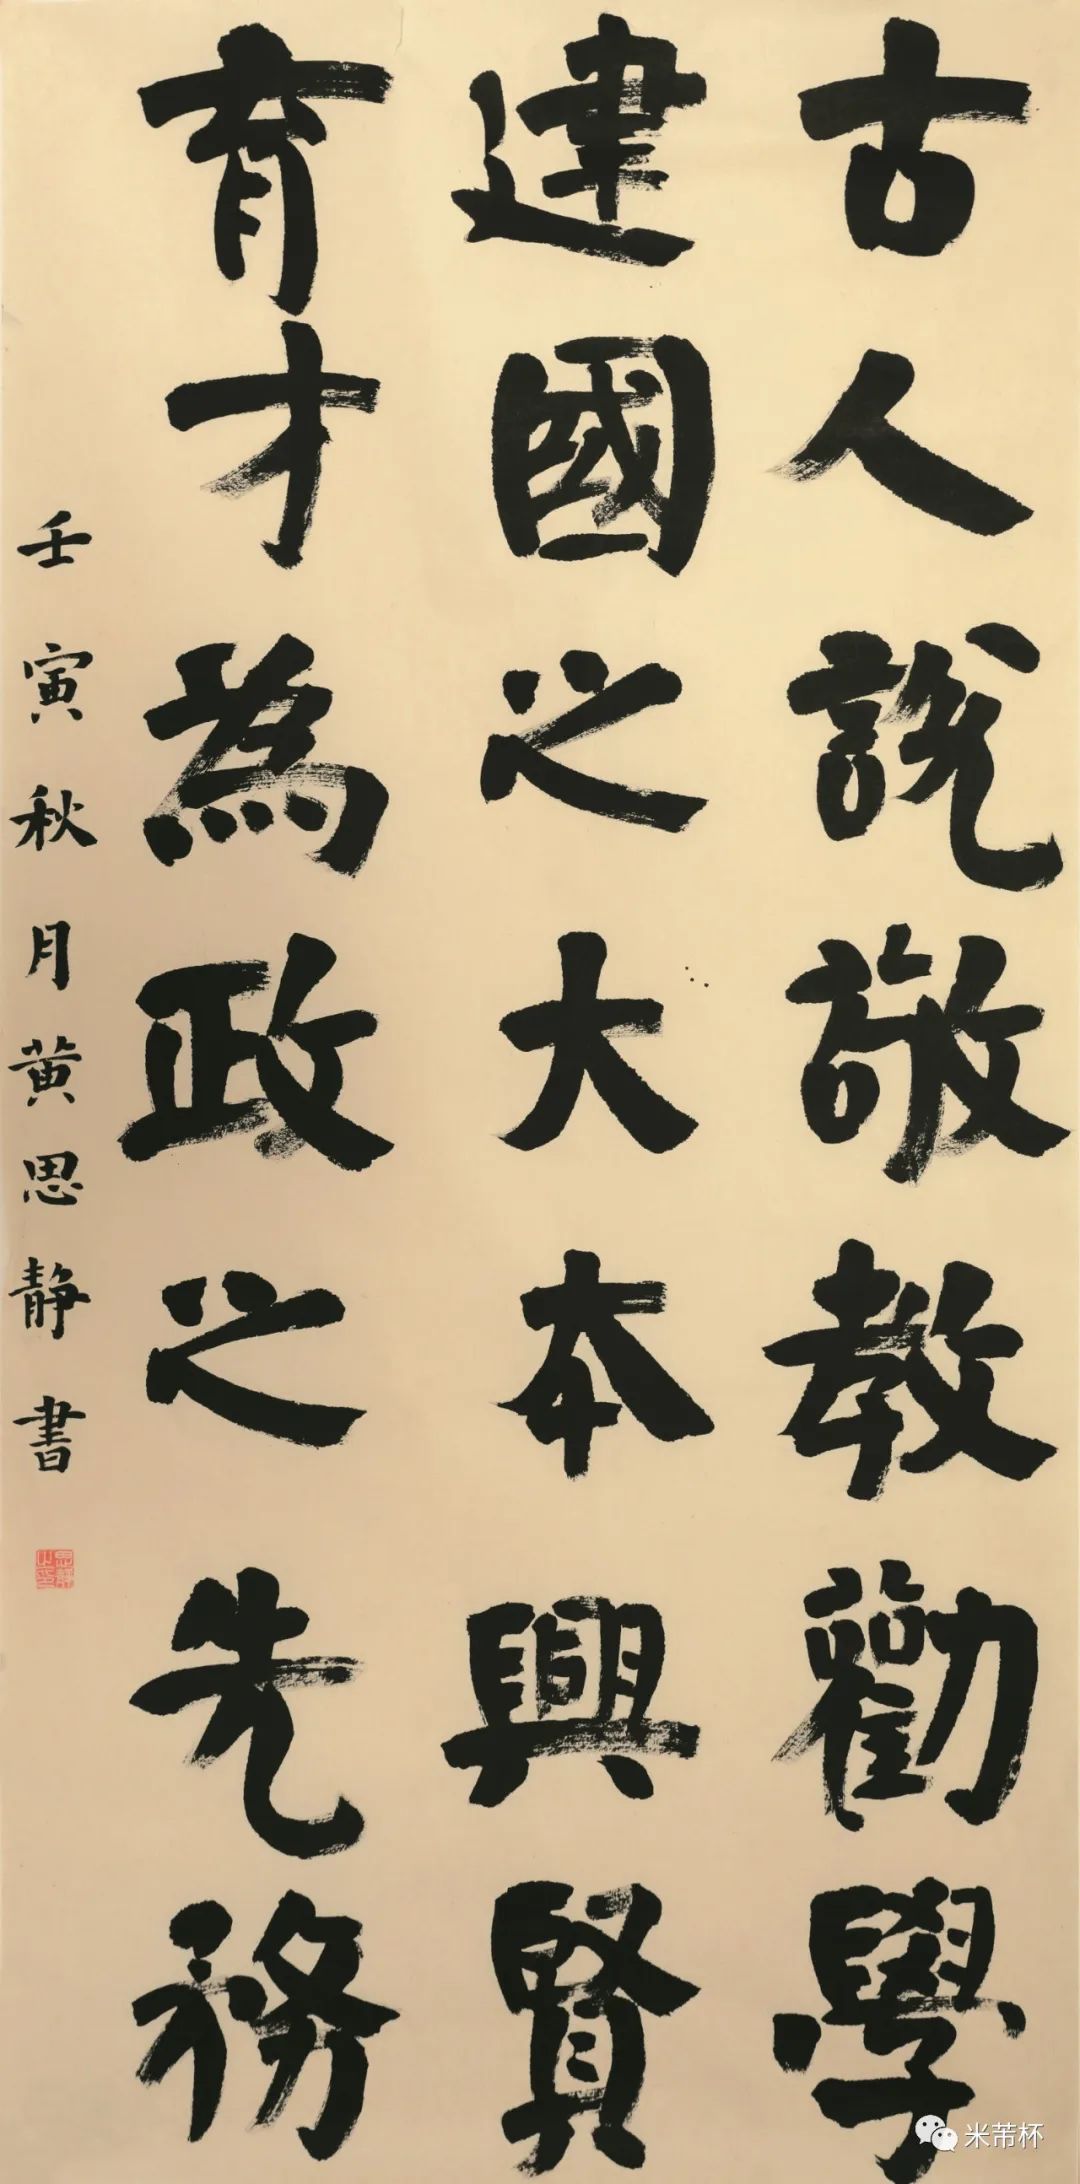 古人說敬教勸學
建國之大本興賢
育才為政之先務
壬寅秋月黄思静書
思靜之印
米芾杯